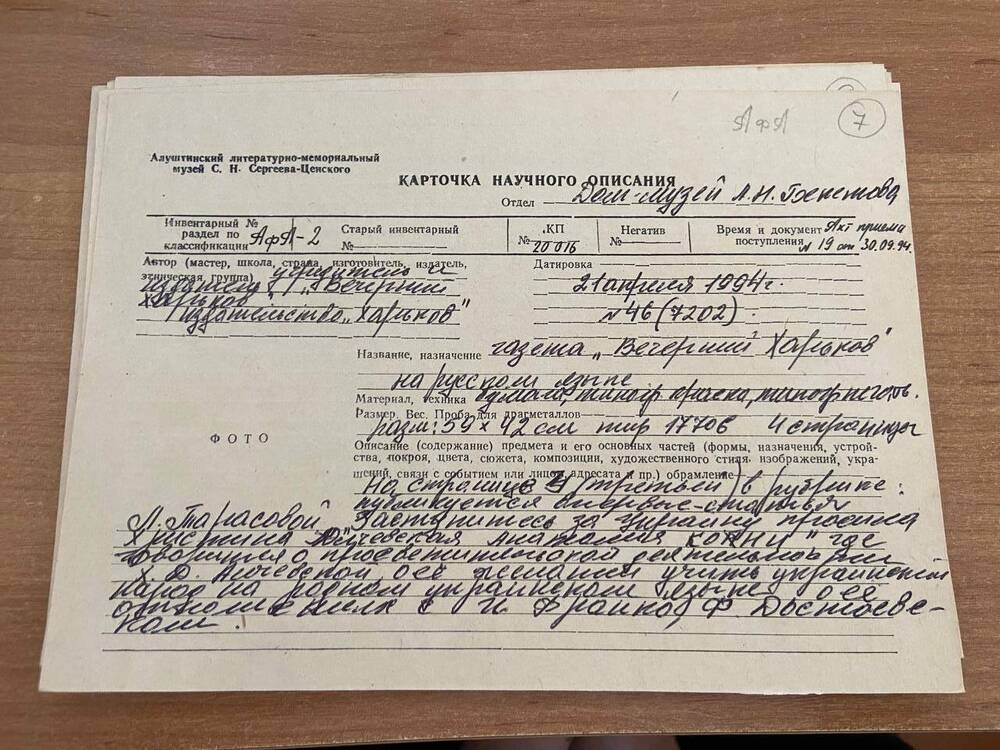 АфА 7
Алуштинский литературно-мемориальный
музей С. Н. Сергеева-Ценского
КАРТОЧКА НАУЧНОГО ОПИСАНИЯ
Отдел Дом-музей А.Н. Бекетова
Инвентарный № раздел по классификации АфА-2
Старый инвентарный №
КП № 20016
Негатив №
Время и документ поступления Акт приема № 19 от 30.09.94.
Автор (мастер, школа, страна, изготовитель, издатель,
этническая группа) учредитель и
издатель "Вечерний
Харьков"
Издательство „Харьков"
Датировка
21 апреля 1994г.
№ 46 (7202)
Название, назначение газета „Вечерний Харьков"
на русском языке
Материал, техника бумага, типогр краска, типогр печать.
Размер. Вес. Проба для драгметаллов
разм: 59 х 42 см тир 17706 4 страницы
ФОТО
Описание (содержание) предмета и его основных частей (формы, назначения, устройства, покроя, цвета, сюжета, композиции, художественного стиля, изображений, украшений, связи с событием или лицом, адресата и пр.) обрамление
На странице 3 (третьей) в рубрике:
публикуется впервые статья
Л. Тарасовой „Заступитесь за Украину просила
Христина Алчевская где
говорится о просветительской деятельности
Х.Д. Алчевской о её желании учить украинский
народ на родном украинском языке о её
с И Франко, Ф. Достоевс-
ким.